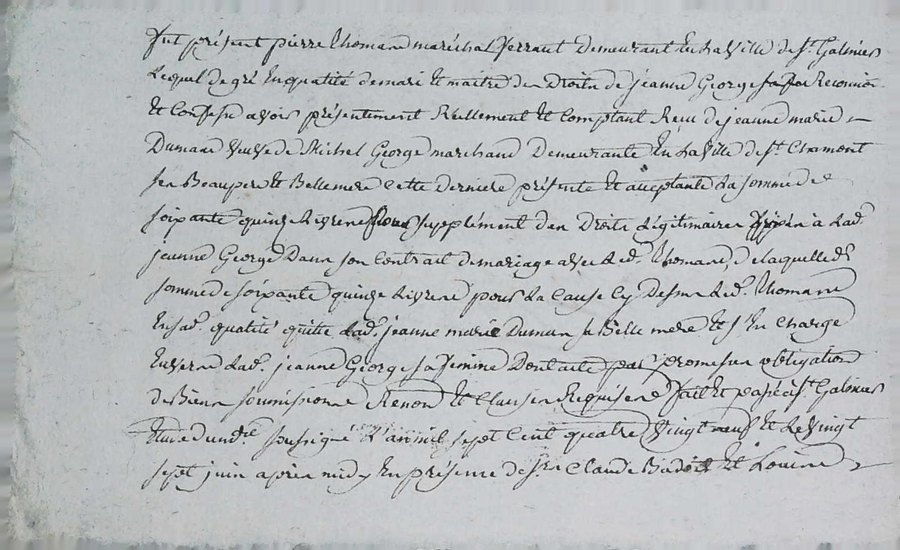 fut présent pierre thomand maréchal ferrant demeurant En la ville de St. Galmier
Lequel de gré En qualité de mari Et maitre des Droits de jeanne George sa
Et Confesse avoir présentement Réellement Et Comptant Reçu de jeanne marie
Dumand veuve de Michel George marchand demeurante En la ville de St. Chamont
Ses Beaupere & Bellemere Cette derniere présente Et acceptante la somme de
soixante quinze livres pour supplément des Droits Légitimaires à lad.
jeanne George Dans son Contrait de mariage avec led. thomand, de laquelle de.
somme de soixante quinze livres pour la Cause Cy dessus led. thomand
En sad. qualité quitte lad. jeanne marie Dumand sa Belle mere Et s'En Charge
Envers lad. jeanne George sa femme Dont acte par promesses obligation
de Biens soumissions Renon. Et Clauses Requises fait Et passé à St. Galmier
Etude du nore. soussigné L'an mil sept Cent quatre vingt neuf Et le vingt
sept juin après midy En présence de sr. Claude Et Louis